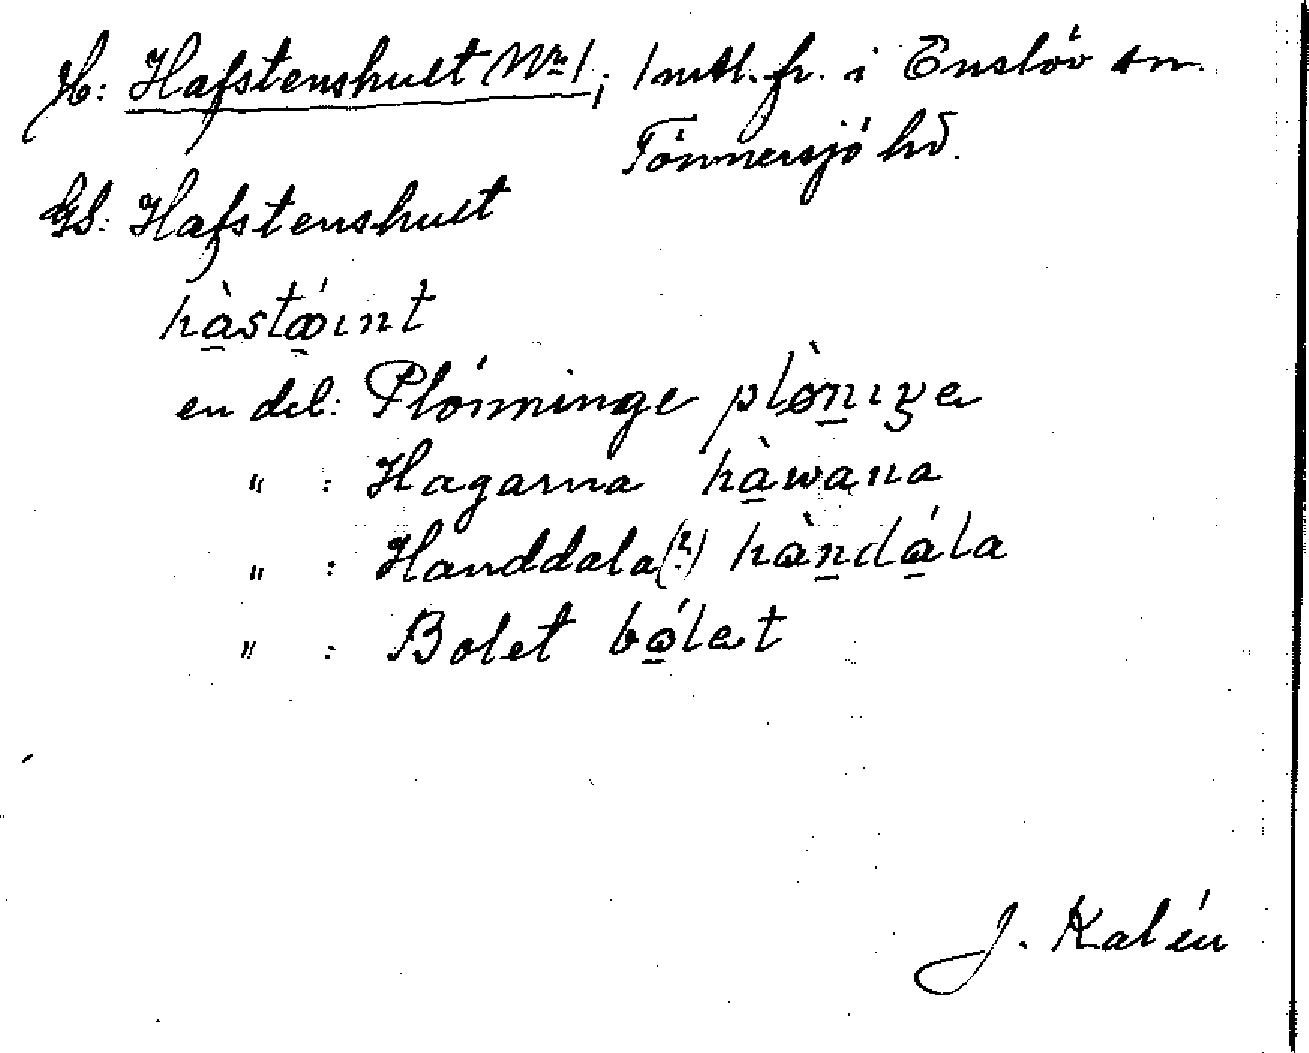 H: Hafstenshult Nr 1; 1 mtl. fr. i Enslöv sn.
Tönnersjö hd.
GS: Hafstenshult
en del: Plönninge
" : Hagarna hàwana
" : Handdala(?) hàndála
" : Bolet bólat
J. Kalén